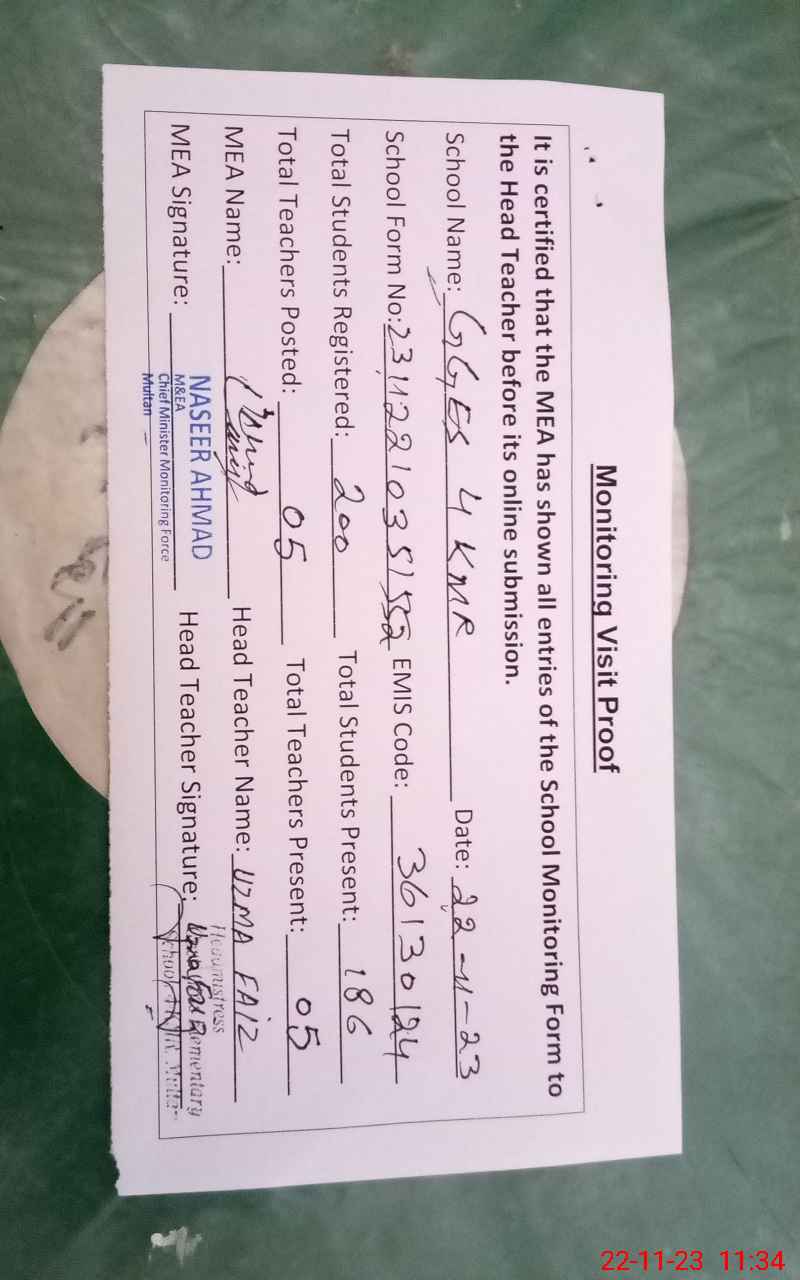 Monitoring Visit Proof
It is certified that the MEA has shown all entries of the School Monitoring Form to
the Head Teacher before its online submission.
School Name: GGES 4 KMR Date: 22-11-23
School Form No: EMIS Code: 36130124
Total Students Registered: 200 Total Students Present: 186
Total Teachers Posted: 05 Total Teachers Present: 05
MEA Name: Head Teacher Name: UZMA FAIZ
MEA Signature: Head Teacher Signature:
NASEER AHMAD
M&EA
Chief Minister Monitoring Force
Multan
Headmistress
Elementary
School
22-11-23 11:34